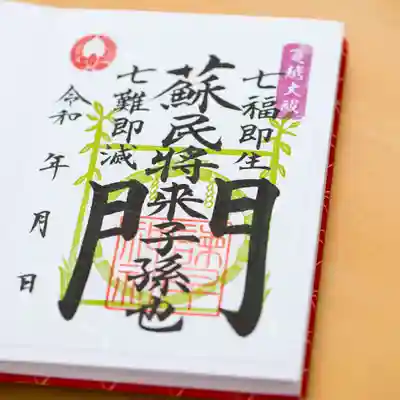 夏越大祓
七福即生
蘇民将来子孫也
門
七難即滅
令和 年 月 日